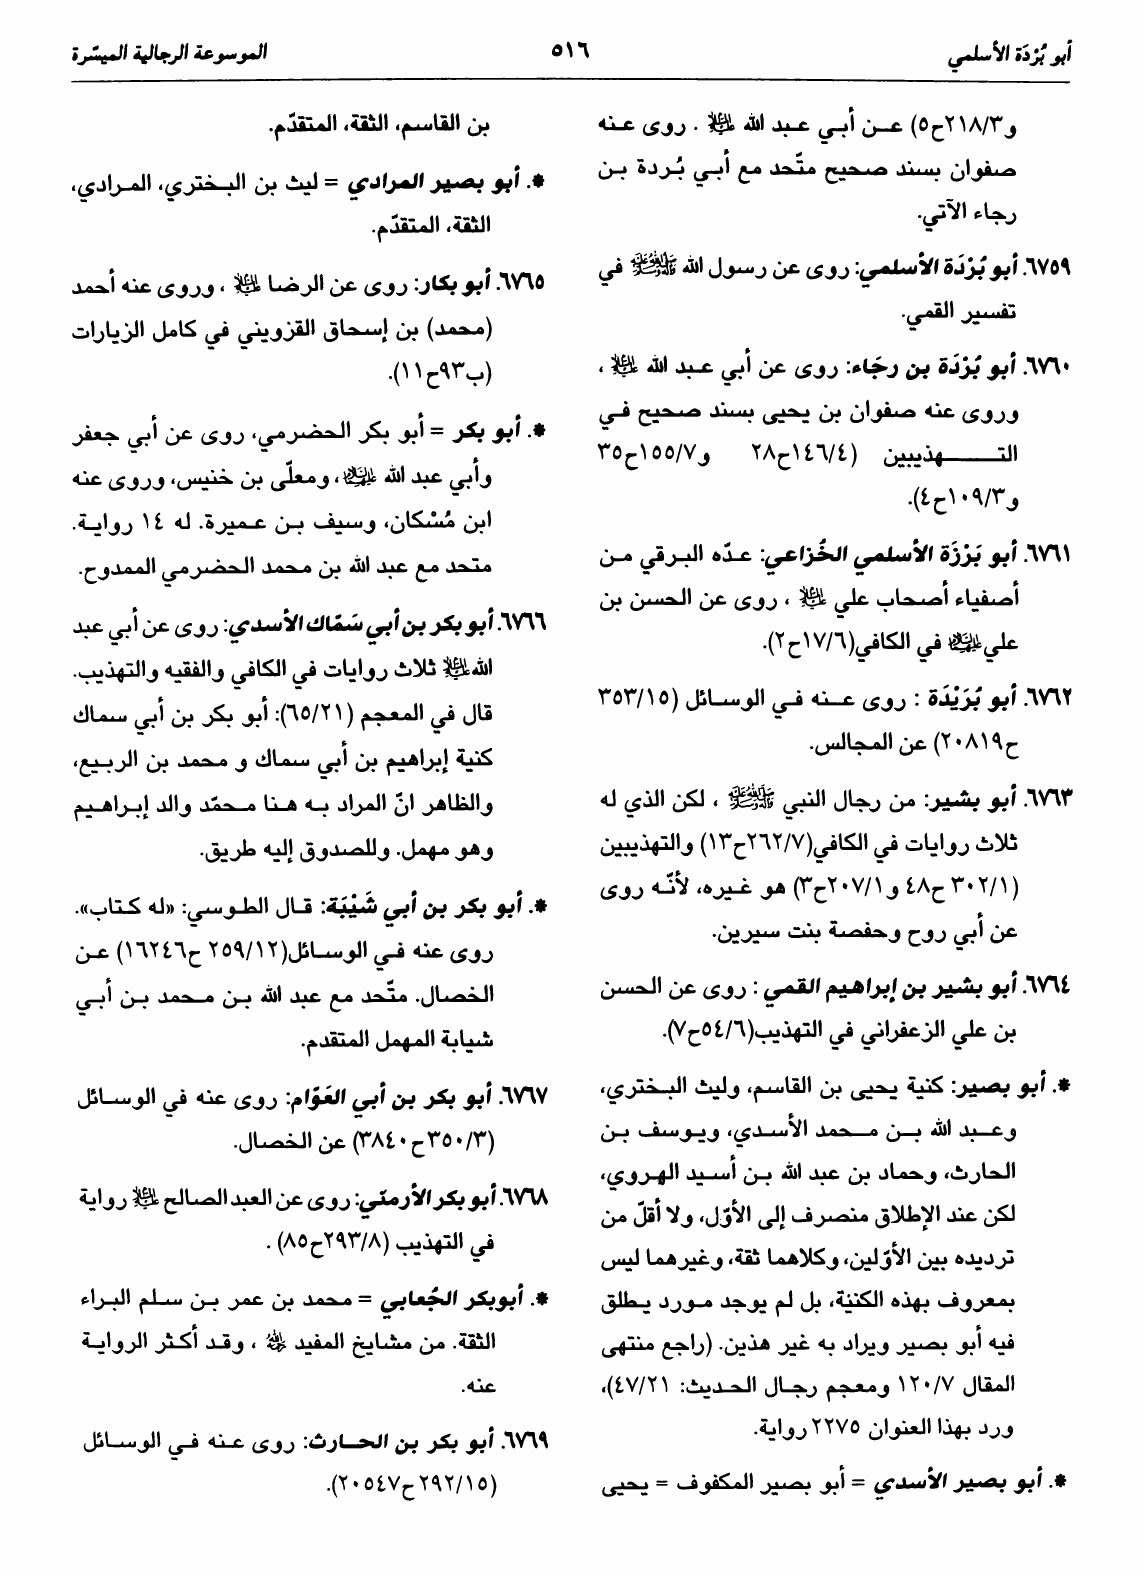 أبو بُرْدَة الأسلمي
٥١٦
الموسوعة الرجالية الميسّرة
و٢١٨/٣ح٥) عن أبي عبد الله عليه السلام . روى عنه
صفوان بسند صحيح متّحد مع أبي بُردة بن
رجاء الآتي.
٦٧٥٩. أبو بُرْدَة الأسلمي: روى عن رسول الله صلى الله عليه وآله في
تفسير القمي.
٦٧٦٠. أبو بُرْدَة بن رجَاء: روى عن أبي عبد الله عليه السلام ،
وروى عنه صفوان بن يحيى بسند صحيح في
التهذيبين (١٤٦/٤ح٢٨ و١٥٥/٧ح٣٥
و١٠٩/٣ح٤).
٦٧٦١. أبو بَرْزَة الأسلمي الخُزاعي: عدّه البرقي من
أصفياء أصحاب علي عليه السلام ، روى عن الحسن بن
علي عليهما السلام في الكافي(١٧/٦ح٢).
٦٧٦٢. أبو بُرَيْدَة : روى عنه في الوسائل (٣٥٣/١٥
ح٢٠٨١٩) عن المجالس.
٦٧٦٣. أبو بشير: من رجال النبي صلى الله عليه وآله ، لكن الذي له
ثلاث روايات في الكافي(٢٦٢/٧ح١٣) والتهذيبين
(٣٠٢/١ ح٤٨ و٢٠٧/١ح٣) هو غيره، لأنّه روى
عن أبي روح وحفصة بنت سيرين.
٦٧٦٤. أبو بشير بن إبراهيم القمي : روى عن الحسن
بن علي الزعفراني في التهذيب(٥٤/٦ح٧).
*. أبو بصير: كنية يحيى بن القاسم، وليث البختري،
وعبد الله بن محمد الأسدي، ويوسف بن
الحارث، وحماد بن عبد الله بن أسيد الهروي،
لكن عند الإطلاق منصرف إلى الأوّل، ولا أقلّ من
ترديده بين الأوّلين، وكلاهما ثقة، وغيرهما ليس
بمعروف بهذه الكنية، بل لم يوجد مورد يطلق
فيه أبو بصير ويراد به غير هذين. (راجع منتهى
المقال ١٢٠/٧ ومعجم رجال الحديث: ٤٧/٢١)،
ورد بهذا العنوان ٢٢٧٥ رواية.
*. أبو بصير الأسدي = أبو بصير المكفوف = يحيى
بن القاسم، الثقة، المتقدّم.
*. أبو بصير المرادي = ليث بن البختري، المرادي،
الثقة، المتقدّم.
٦٧٦٥. أبو بكار: روى عن الرضا عليه السلام ، وروى عنه أحمد
(محمد) بن إسحاق القزويني في كامل الزيارات
(ب٩٣ح١١).
*. أبو بكر = أبو بكر الحضرمي، روى عن أبي جعفر
وأبي عبد الله عليهما السلام، ومعلّى بن خنيس، وروى عنه
ابن مُسْكان، وسيف بن عميرة. له ١٤ رواية.
متحد مع عبد الله بن محمد الحضرمي الممدوح.
٦٧٦٦. أبو بكر بن أبي سَمّاك الأسدي: روى عن أبي عبد
الله عليه السلام ثلاث روايات في الكافي والفقيه والتهذيب.
قال في المعجم (٦٥/٢١): أبو بكر بن أبي سماك
كنية إبراهيم بن أبي سماك و محمد بن الربيع،
والظاهر انّ المراد به هنا محمّد والد إبراهيم
وهو مهمل. وللصدوق إليه طريق.
*. أبو بكر بن أبي شَيْبَة: قال الطوسي: «له كتاب».
روى عنه في الوسائل(٢٥٩/١٢ ح١٦٢٤٦) عن
الخصال. متّحد مع عبد الله بن محمد بن أبي
شيابة المهمل المتقدم.
٦٧٦٧. أبو بكر بن أبي العَوّام: روى عنه في الوسائل
(٣٥٠/٣ح٣٨٤٠) عن الخصال.
٦٧٦٨. أبو بكر الأرمنّي: روى عن العبد الصالح عليه السلام رواية
في التهذيب (٢٩٣/٨ح٨٥) .
*. أبوبكر الجُعابي = محمد بن عمر بن سلم البراء
الثقة. من مشايخ المفيد ، وقد أكثر الرواية
عنه.
٦٧٦٩. أبو بكر بن الحارث: روى عنه في الوسائل
(٢٩٢/١٥ح٢٠٥٤٧).